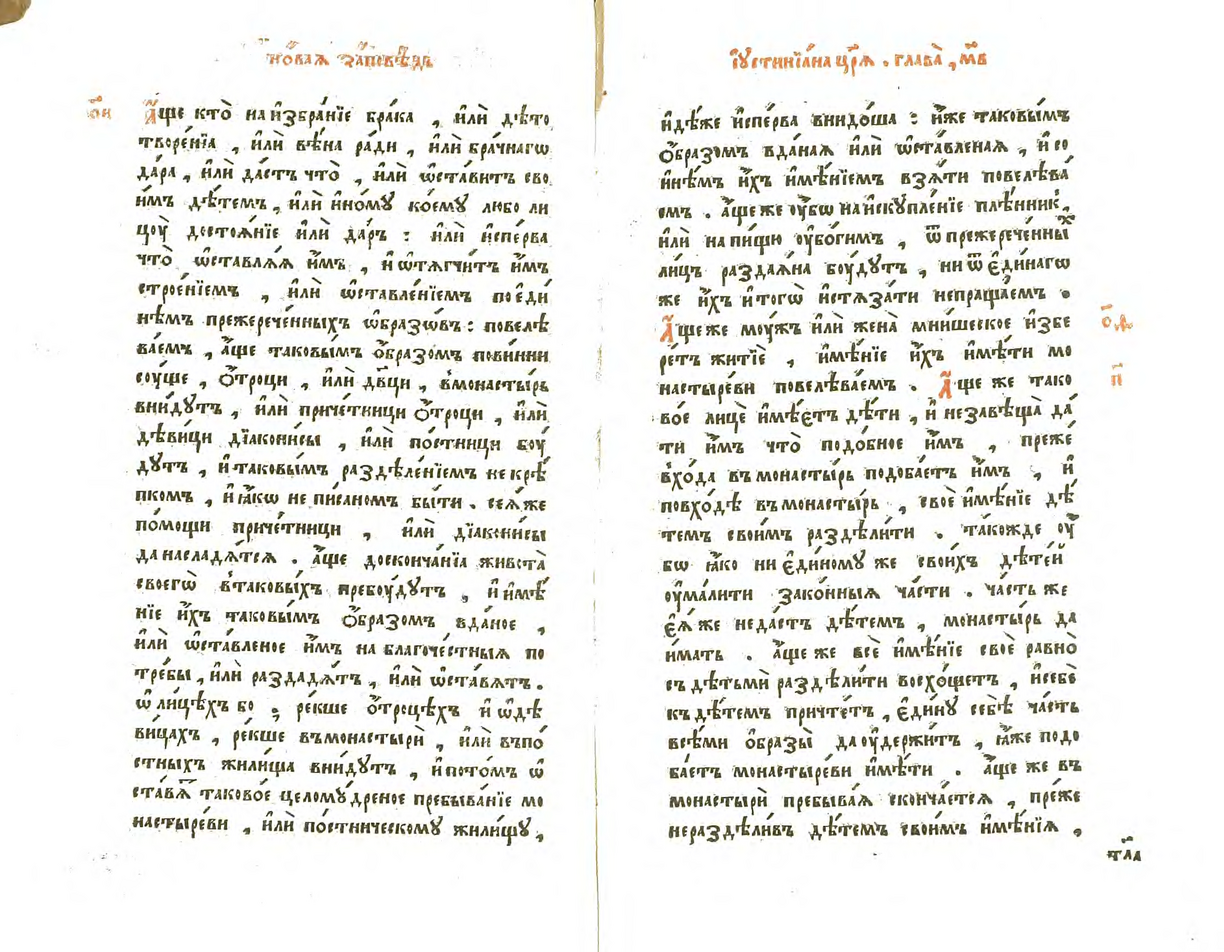 но́ваѧ за́повѣдь
о҃и
А҆́ще кто̀ на и҆збра́нїе бра́ка , и҆лѝ дѣ́то
творе́нїа , и҆лѝ вѣ́на ра́ди , и҆лѝ бра́чнагѡ
да́ра , и҆лѝ да́стъ что̀ , и҆лѝ ѡ҆ста́витъ сво
и҆́мъ дѣ́темъ , и҆лѝ и҆но́мꙋ ко́емꙋ любо ли
цоу̀ достоѧ́нїе и҆лѝ да́ръ : и҆лѝ и҆спе́рва
что̀ ѡ҆ставлѧ́ѧ и҆̀мъ , и҆ ѡ҆тѧгчи́тъ и҆̀мъ
строе́нїемъ , и҆лѝ ѡ҆ставле́нїемъ по е҆ди
нѣ́мъ прежерече́нныхъ ѡ҆́бразѡвъ : повелѣ
ва́емъ , а҆́ще таковы́мъ ѻ҆́бразомъ пови́нни
соу́ще , ѻ҆́троци , и҆лѝ дв҃ци , в̾монасты́рь
вни́дꙋтъ , и҆лѝ приче́тници ѻ҆́троци , и҆лѝ
дѣ́вици дїа́кониссы , и҆лѝ по́стници боу́
дꙋтъ , и҆ таковы́мъ раздѣле́нїемъ не крѣ́
пкомъ , и҆ ꙗ҆́кѡ не пи́саномъ бы́ти . сеѧ́же
по́мощи приче́тници , и҆лѝ дїа́кониссы
да насладѧ́тсѧ . а҆́ще до сконча́нїа живота̀
своегѡ̀ в̾таковы́хъ пребоу́дꙋтъ , и҆ и҆мѣ́
нїе и҆́хъ таковы́мъ ѻ҆́бразомъ вда́ное ,
и҆лѝ ѡ҆ста́вленое и҆̀мъ на благоче́стныѧ по
тре́бы , и҆лѝ раздадѧ́тъ , и҆лѝ ѡ҆ста́вѧтъ .
ѡ҆ ли́цѣхъ бо ; ре́кше ѻ҆́троцѣхъ и҆ ѡ҆ дѣ
ви́цахъ , ре́кше въ монастырѝ , и҆лѝ въ по́
стныхъ жили́ща вни́дꙋтъ , и҆ пото́мъ ѡ҆
ста́вѧ таково́е целомꙋ́дреное пребыва́нїе мо
насты́реви , и҆лѝ по́стническомꙋ жили́щꙋ ,
І҆оустинїа́на цр҃ѧ . глава̀ , м҃в
и҆дѣ́же и҆спе́рва внидо́ша : и҆́же таковы́мъ
ѻ҆́бразомъ вда́наѧ и҆лѝ ѡ҆ста́вленаѧ , и҆ со
и҆нѣ́мъ и҆́хъ и҆мѣ́нїемъ взѧ́ти повелѣва́
емъ . а҆́ще же оу҆́бѡ на и҆скꙋпле́нїе плѣ́нникⷯ,
и҆лѝ на пи́щꙋ оу҆бо́гимъ , ѿ прежерече́нныⷯ
ли́цъ раздаѧ́на боу́дꙋтъ , ни ѿ є҆ди́нагѡ
же и҆́хъ и҆ того̀ и҆стѧза́ти непраща́ем .
А҆́ще же моу́жъ и҆лѝ жена̀ мни́шеское и҆збе
ре́тъ житїѐ , и҆мѣ́нїе и҆́хъ и҆мѣ́ти мо
насты́реви повелѣва́емъ . А҆́ще же тако
во́е лицѐ и҆мѣ́етъ дѣ́ти , и҆ не завѣща̀ да́
ти и҆̀мъ что̀ подо́бное и҆̀мъ , пре́же
вхо́да въ монасты́рь подоба́етъ и҆̀мъ , и҆
по вхо́дѣ въ монасты́рь , своѐ и҆мѣ́нїе дѣ́
темъ свои́мъ раздѣли́ти . та́кожде оу҆̀
бѡ ꙗ҆́ко ни є҆ди́номꙋ же свои́хъ дѣте́й
оу҆мали́ти зако́нныѧ ча́сти . ча́сть же
є҆ѧ́же неда́стъ дѣ́темъ , монасты́рь да
и҆́мать . а҆́ще же всѐ и҆мѣ́нїе своѐ равно̀
съ дѣтьмѝ раздѣли́ти восхо́щетъ , и҆ себѐ
къ дѣ́темъ причте́тъ , є҆ди́нꙋ себѣ̀ ча́сть
всѣ́ми ѻ҆́бразы да оу҆держи́тъ , ꙗ҆́же подо
ба́етъ монасты́реви и҆мѣ́ти . а҆́ще же въ
монастырѝ пребыва́ѧ сконча́етсѧ , пре́же
нераздѣли́въ дѣ́темъ свои́мъ и҆мѣ́нїѧ ,
о҃ѳ
п҃
тл҃а